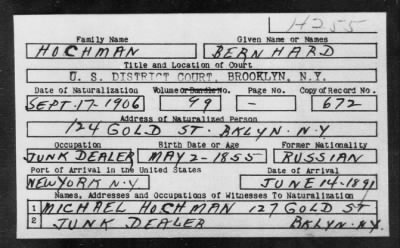 H255
Family Name Given Name or Names
HOCHMAN BERNHARD
Title and Location of Court
U. S. DISTRICT COURT, BROOKLYN, N.Y.
Date of Naturalization Volume or Bundle No. Page No. Copy of Record No.
SEPT-17-1906 99 - 672
Address of Naturalized Person
124 GOLD ST. BKLYN. N.Y
Occupation Birth Date or Age Former Nationality
JUNK DEALER MAY 2-1855 RUSSIAN
Port of Arrival in the United States Date of Arrival
NEW YORK N.Y. JUNE 14-1891
Names, Addresses and Occupations of Witnesses To Naturalization
1 MICHAEL HOCHMAN 127 GOLD ST
2 JUNK DEALER BKLYN. N.Y.